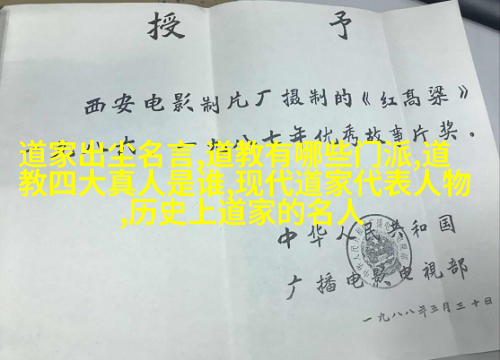 授 予
西安电影制片厂摄制的《红高粱》
一九八七年优秀故事片奖。
道家出尘名言,道教有哪些门派,道
教四大真人是谁,现代道家代表人物
,历史上道家的名人
中华人民共和国
广播电影电视部
一九八八年三月三十日